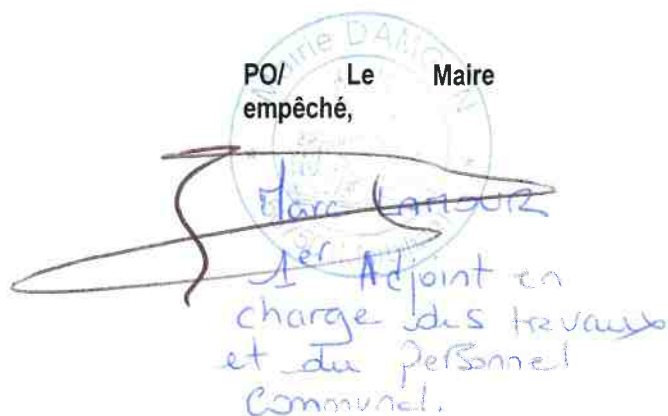 Mairie DAMGAN
PO/ Le Maire
empêché,
Marc LAMOUR
1er Adjoint en
charge des travaux
et du Personnel
Communal.